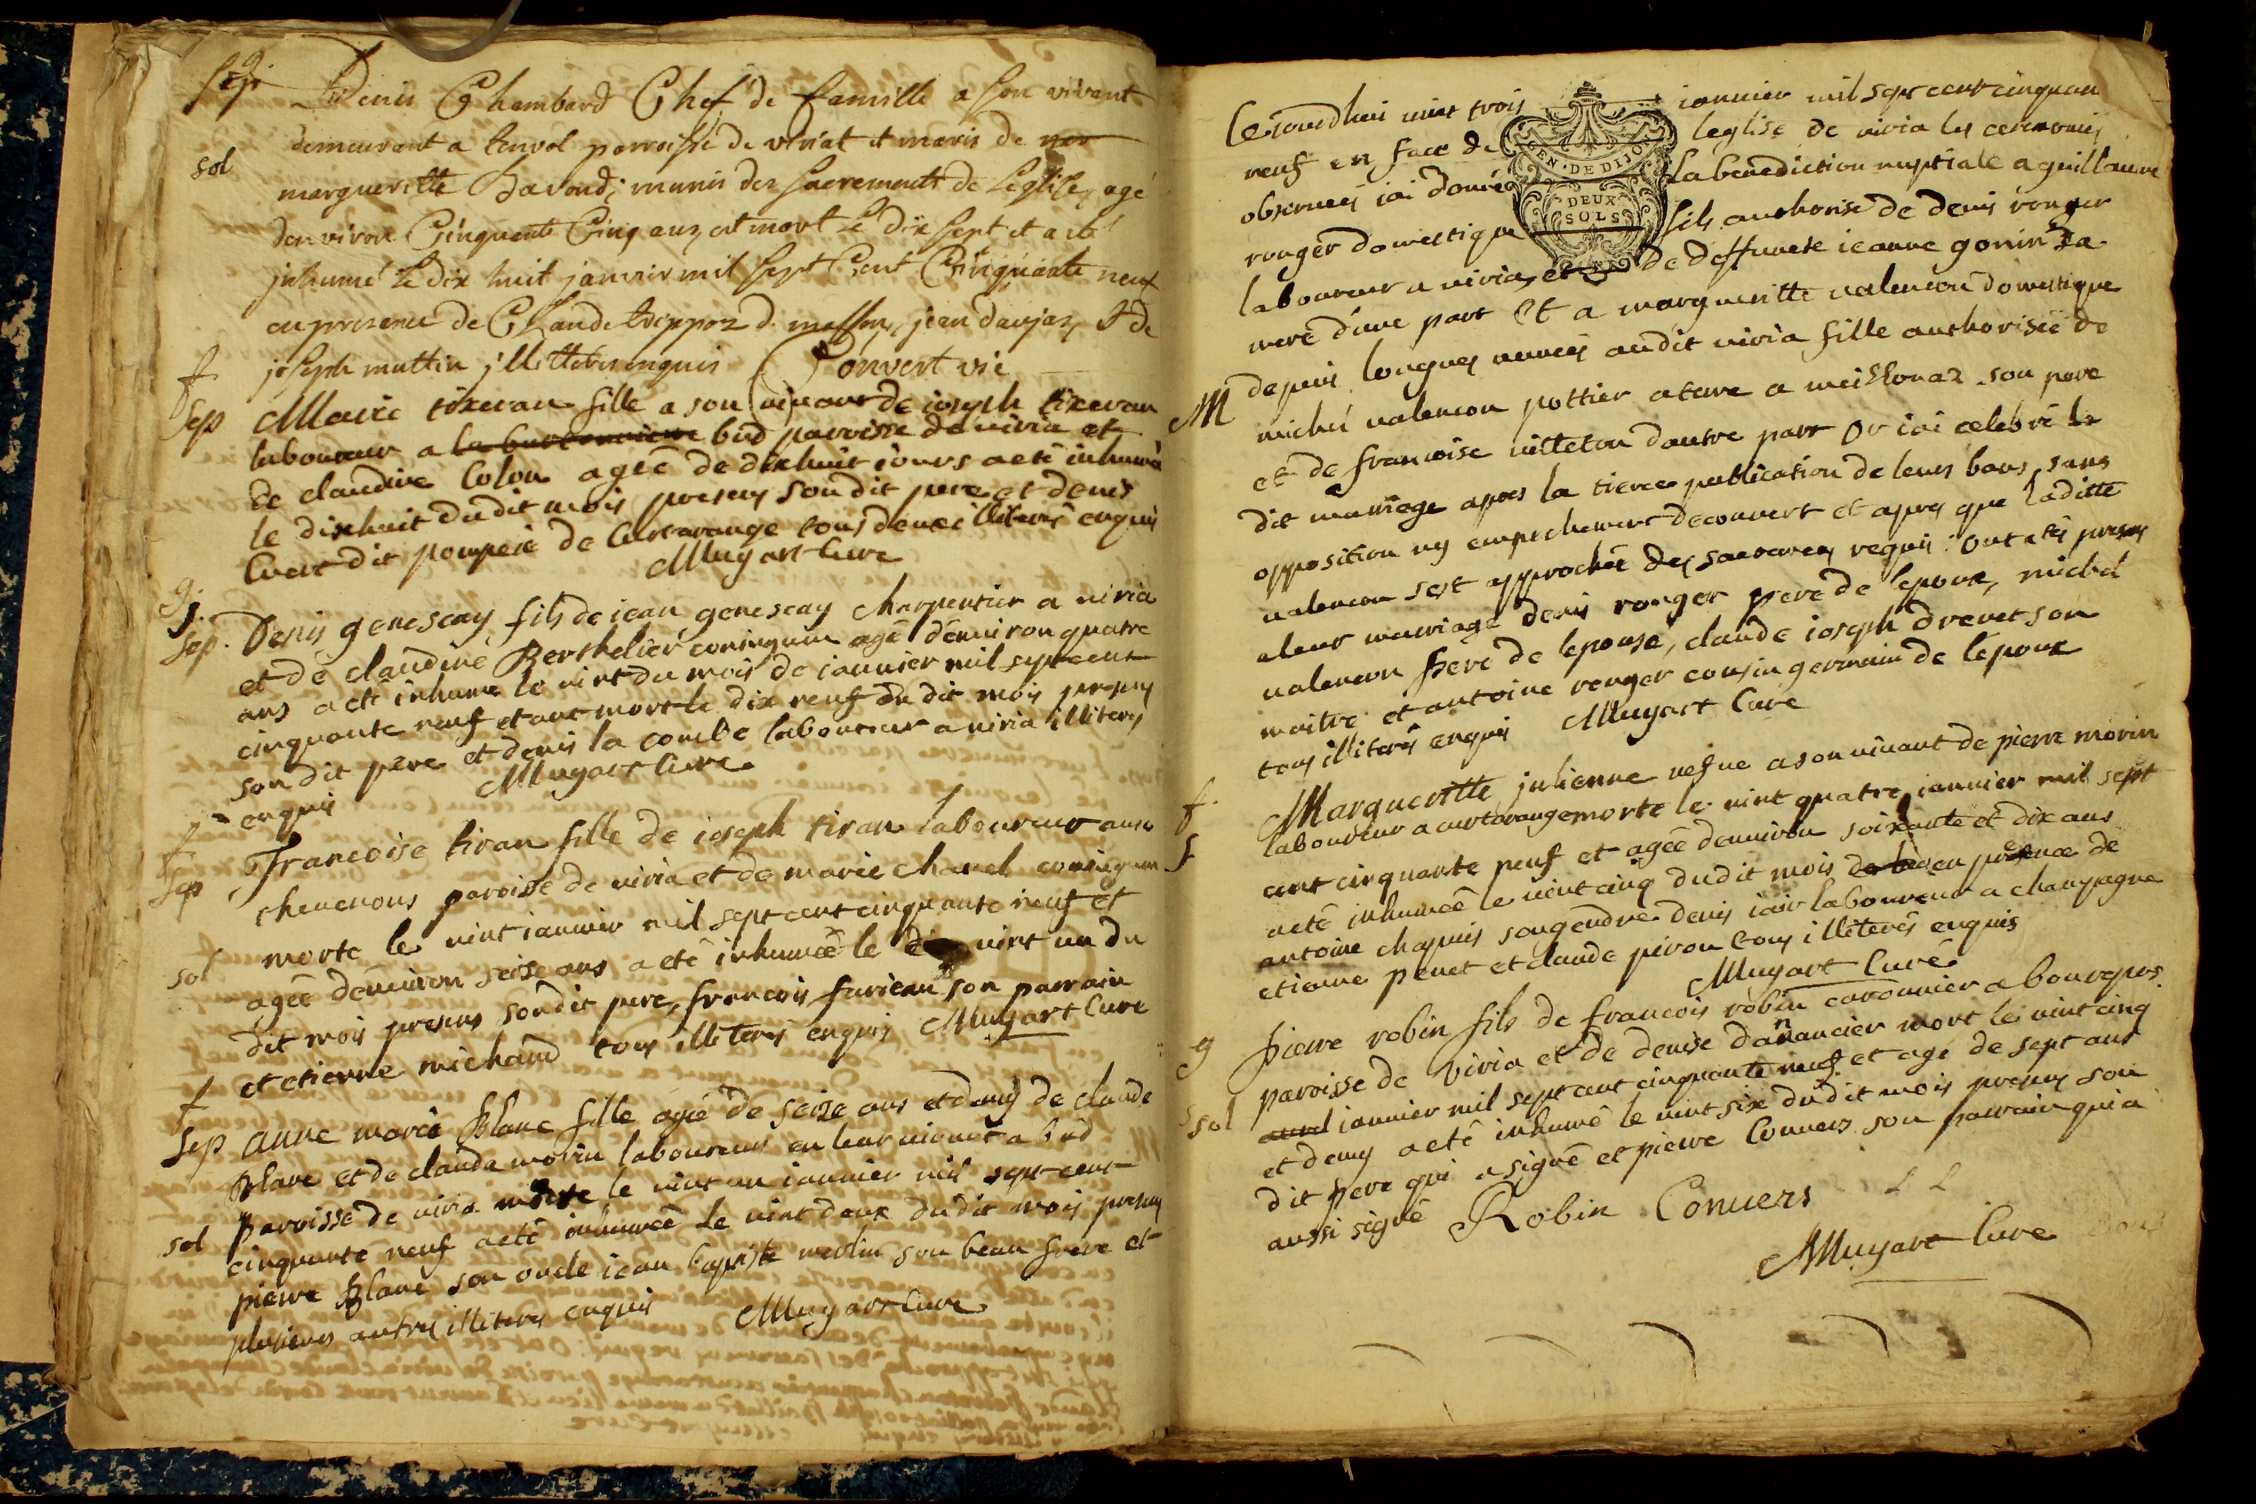 sep Denis Chambard Chef de famille a son vivant
demeurant a tenvol parroisse de viriat et maris de
sol
margueritte munis des sacrements de Leglise, agé
denviron Cinquante Cinq ans, est mort Le dix sept et a eté
inhumé Le dix huit janvier mil sept Cent Cinquante neuf
en presence de Claude masson, jean daujaz, & de
joseph muttin jllitterés enquis Convert vic
f
sep Marie tixeran fille a son vivant de ioseph tixeran
laboureur a bud paroisse de viria et
de claudine Colon ageê de dixhuit iours a etê inhumeê
le dixhuit dudit mois presens son dit pere et denis
dit pompeie de Curtarange tous deux illiterês enquis
Muyart Cure
g.
sep. Denis genescay fils de iean genescay charpentier a viria
et de claudine Berthelier coniugum agê denviron quatre
ans a ete inhume le vint du mois de ianvier mil sept cent
cinquante neuf etant mort le dix neuf du dit mois presens
son dit pere et denis la combe laboureur a viria illiterés
enquis Muyart Cure
f
sep Francoise tiran fille de ioseph tiran laboureur aux
chevenons paroisse de viria et de marie chanel coniugum
morte le vint ianvier mil sept cent cinquante neuf et
sol
ageê denviron seise ans a etê inhumeê le vint un du
dit mois presens sondit pere, francois furieau son parrain
et etienne michaud tous illiterés enquis Muyart Cure
f
sep anne marie Blanc fille ageê de seise ans et demy de claude
Blanc et de clauda morin laboureurs en leur vivant a bud
paroisse de viria morte le vint un ianvier mil sept cent
sol
cinquante neuf a etê inhumeê le vint deux dudit mois presens
pierre Blanc son oncle iean baptiste merlin son beau frere et
plusieurs autres illiteres enquis Muyart Cure
Ceiourdhui vint trois ianvier mil sept cent cinquante
neuf en face de leglise de viria les ceremonies
observeés iai donnê la benediction nuptiale a guillaume
GEN. DE DIJON
DEUX
SOLS
ronger domestique fils authorisé de denis ronger
laboureur a viria, et de deffunte ieanne gonin sa
mere d'une part et a margueritte valencon domestique
depuis longues anneés audit viria fille authoriseê de
M
michel valencon pottier a terre a meillonaz son pere
et de francoise villeton dautre part Or iai celebrê le
dit mariage apres la tierce publication de leurs bans sans
opposition ny empechement decouvert et apres que laditte
valencon sest approcheê des sacremens requis. Ont etês presens
a leur marriage denis ronger pere de lepoux, michel
valencon frere de lepouse, claude ioseph drevet son
maitre et antoine ronger cousin germain de lepoux
tous illiterés enquis Muyart Cure
f.
Margueritte julienne vefve a son vivant de pierre morin
laboureur a curtarange morte le vint quatre ianvier mil sept
f
cent cinquante neuf et ageê denviron soixante et dix ans
a etê inhumeê le vint cinq dudit mois en presence de
antoine chapuis son gendre denis iair laboureur a champagne
etienne penet et claude piron tous illiterês enquis
Muyart Curé
g pierre robin fils de francois robin caronnier a bourepos
paroisse de viria et de denise danancier mort le vint cinq
sol
ianvier mil sept cent cinquante neuf et agê de sept ans
et demy a etê inhumê le vint six dudit mois presens son
dit pere qui a signê et pierre Convers son parrain qui a
aussi signê Robin Convers
Muyart Cure